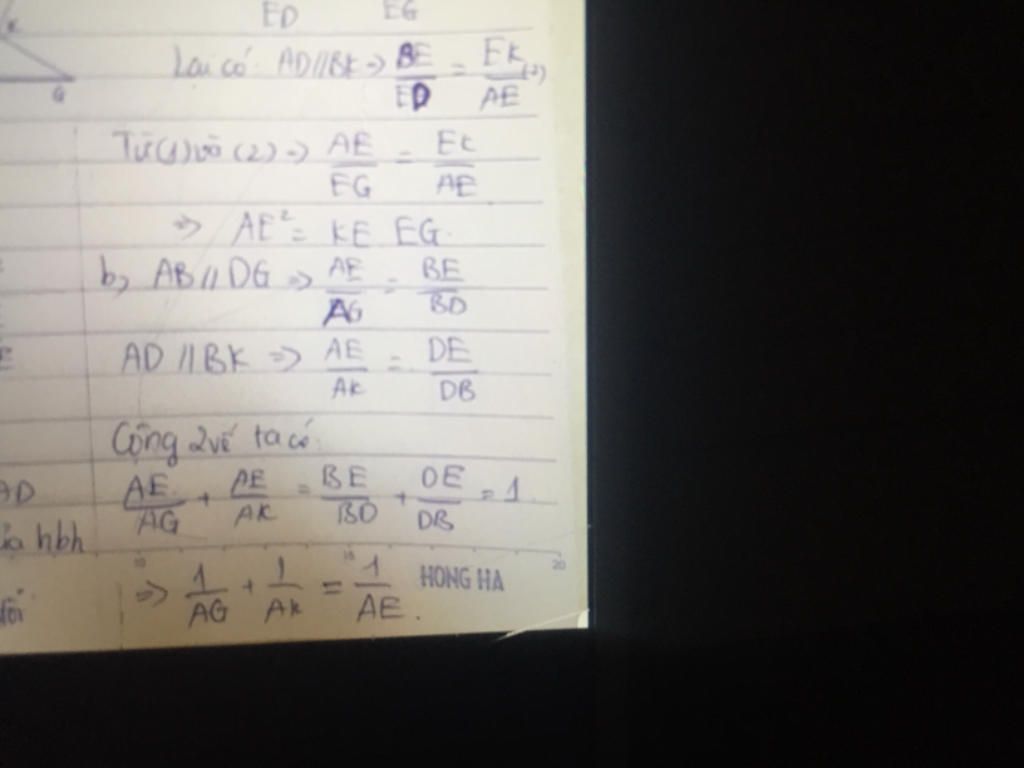 ED EG
K
Lại có: AD//BK => BE/ED = EK/AE (2)
G
Từ (1) và (2) => AE/EG = EK/AE
=> AE² = KE EG.
b, AB // DG => AE/AG = BE/BD
AD // BK => AE/AK = DE/DB
Cộng 2 vế ta có:
AD
AE/AG + AE/AK = BE/BD + DE/DB = 1.
hbh
10 15 20
=> 1/AG + 1/AK = 1/AE.
HONG HA